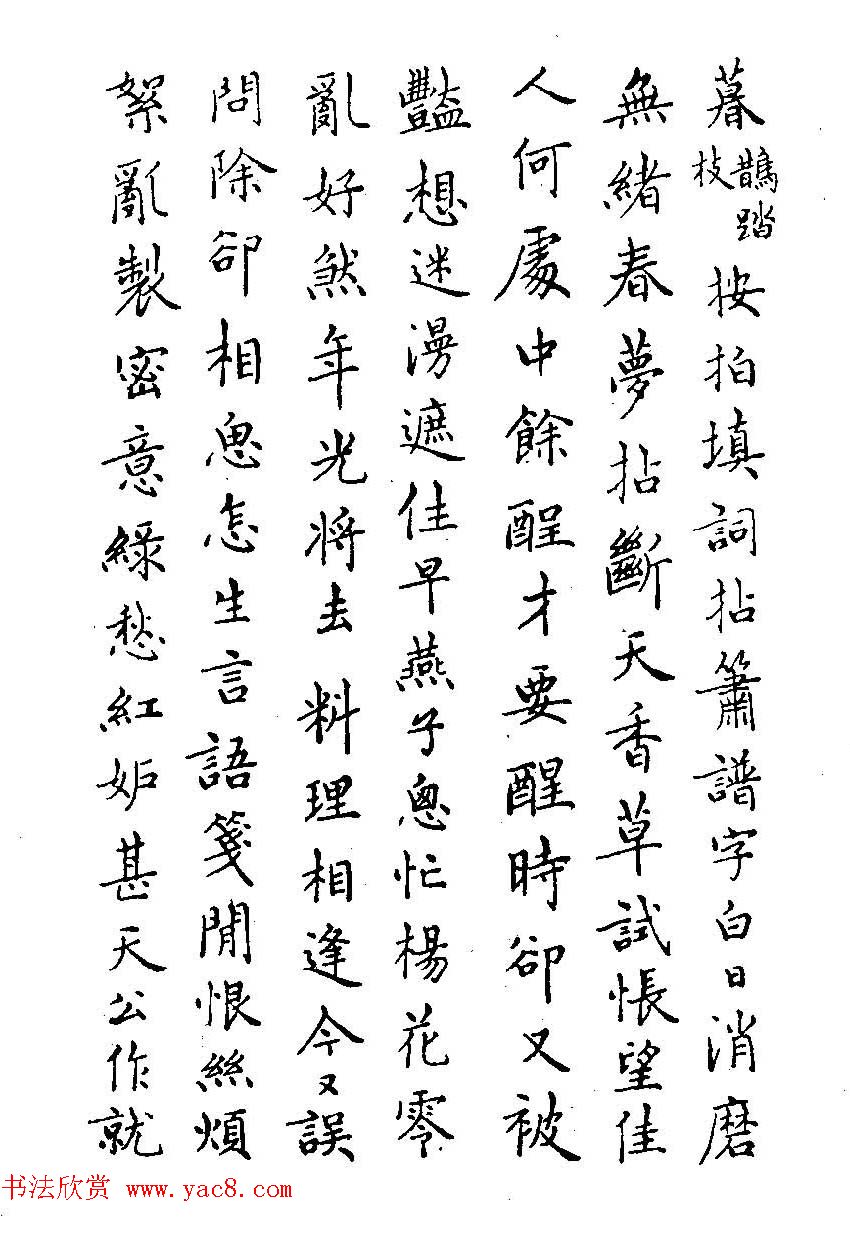 暮鵲踏枝按拍填詞拈簫譜字白日消磨
無緒春夢拈斷天香草試悵望佳
人何處中餘酲才要醒時卻又被
豔想迷漫遮住早燕子悤忙楊花零
亂好煞年光將去料理相逢今又誤
問除卻相思怎生言語箋閒恨絲煩
絮亂製密意綠愁紅妬甚天公作就
书法欣赏 www.yac8.com